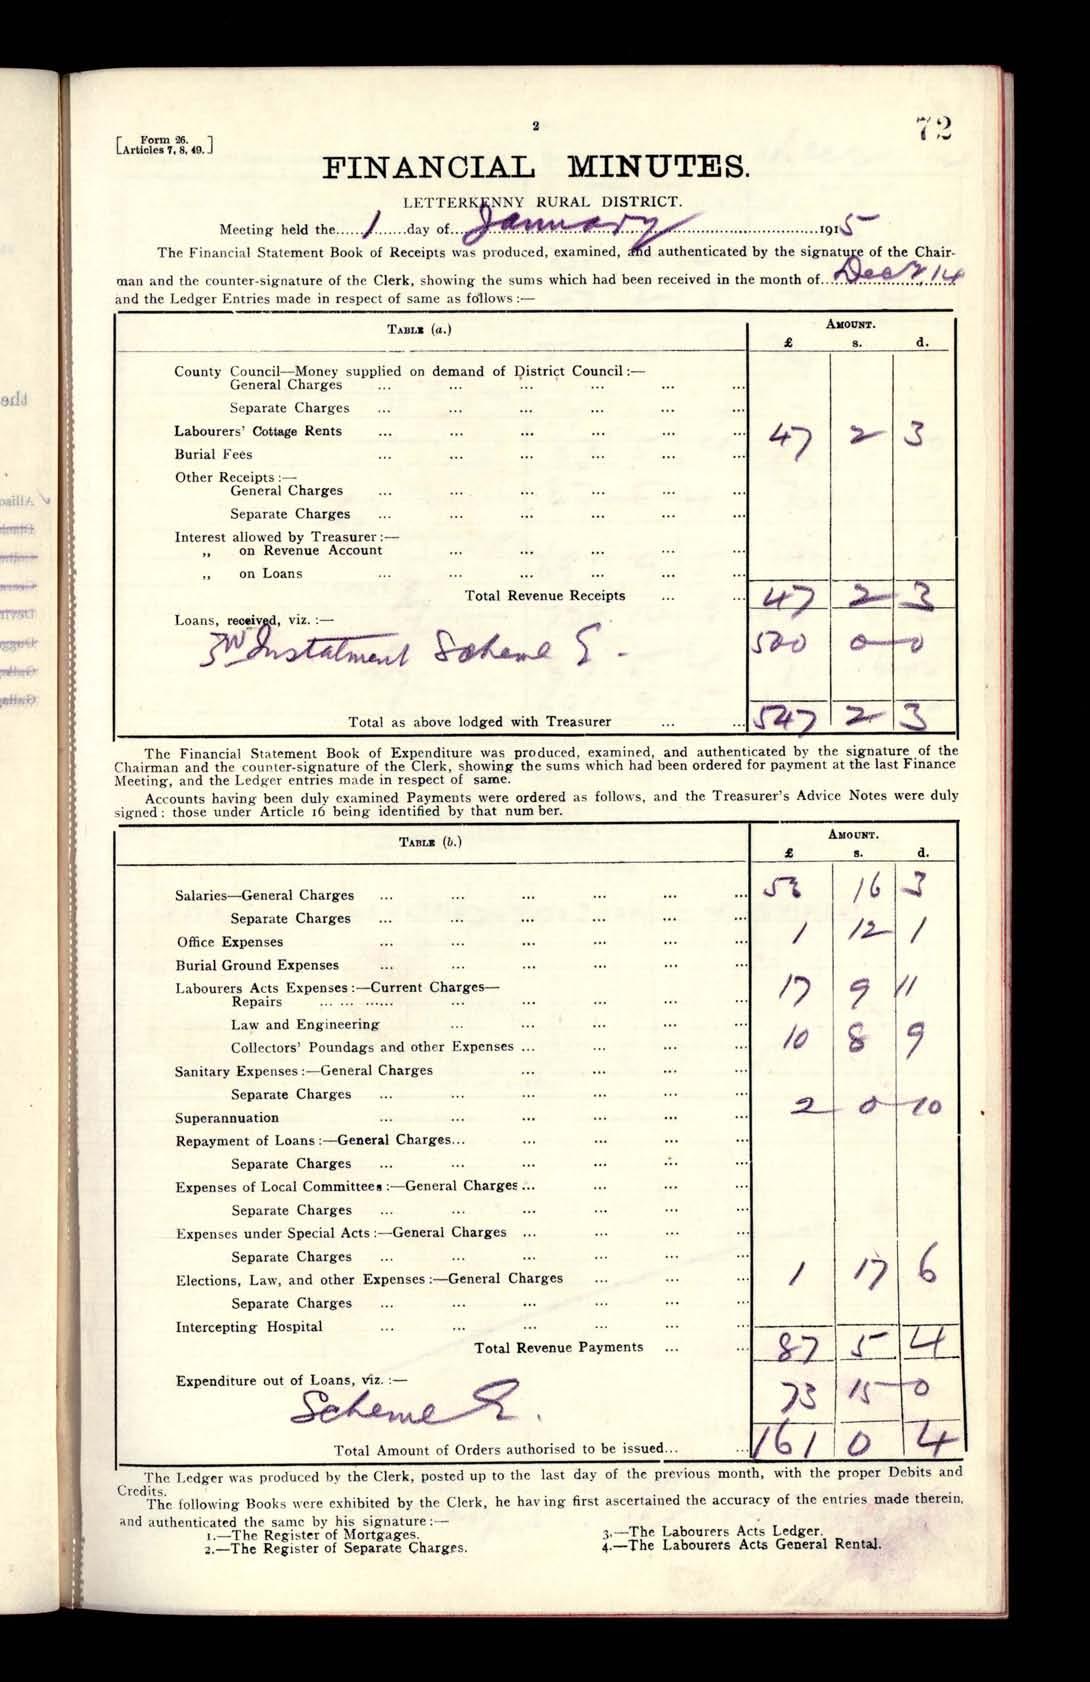 2
72
[Form 26.
Articles 7, 8, 49.]
FINANCIAL MINUTES.
LETTERKENNY RURAL DISTRICT.
Meeting held the......1......day of...January...1915
The Financial Statement Book of Receipts was produced, examined, and authenticated by the signature of the Chair-
man and the counter-signature of the Clerk, showing the sums which had been received in the month of...Decr, 14
and the Ledger Entries made in respect of same as follows :—
TABLE (a.) AMOUNT.
£ s. d.
County Council—Money supplied on demand of District Council :—
General Charges ... ... ... ... ... ...
Separate Charges ... ... ... ... ... ...
Labourers' Cottage Rents ... ... ... ... ... ... 47 2 3
Burial Fees ... ... ... ... ... ...
Other Receipts :—
General Charges ... ... ... ... ... ...
Separate Charges ... ... ... ... ... ...
Interest allowed by Treasurer :—
,, on Revenue Account ... ... ... ... ...
,, on Loans ... ... ... ... ... ...
Total Revenue Receipts ... ... 47 2 3
Loans, received, viz. :—
3rd Instalment Scheme E. - 500 0 0
Total as above lodged with Treasurer ... ... 547 2 3
The Financial Statement Book of Expenditure was produced, examined, and authenticated by the signature of the
Chairman and the counter-signature of the Clerk, showing the sums which had been ordered for payment at the last Finance
Meeting, and the Ledger entries made in respect of same.
Accounts having been duly examined Payments were ordered as follows, and the Treasurer's Advice Notes were duly
signed : those under Article 16 being identified by that number.
TABLE (b.) AMOUNT.
£ s. d.
Salaries—General Charges ... ... ... ... ... ... 53 16 3
Separate Charges ... ... ... ... ... ...
Office Expenses ... ... ... ... ... ... 1 12 1
Burial Ground Expenses ... ... ... ... ... ...
Labourers Acts Expenses :—Current Charges—
Repairs ... ... ...... ... ... ... ... ... 17 9 11
Law and Engineering ... ... ... ... ...
Collectors' Poundags and other Expenses ... ... ... ... 10 8 9
Sanitary Expenses :—General Charges ... ... ... ...
Separate Charges ... ... ... ... ... ...
Superannuation ... ... ... ... ... ... 2 0 10
Repayment of Loans :—General Charges... ... ... ... ...
Separate Charges ... ... ... ... ... ...
Expenses of Local Committees :—General Charges ... ... ... ...
Separate Charges ... ... ... ... ... ...
Expenses under Special Acts :—General Charges ... ... ... ...
Separate Charges ... ... ... ... ... ...
Elections, Law, and other Expenses :—General Charges ... ... ... 1 17 6
Separate Charges ... ... ... ... ... ...
Intercepting Hospital ... ... ... ... ... ...
Total Revenue Payments ... ... 87 5 4
Expenditure out of Loans, viz. :—
Scheme E. 73 15 0
Total Amount of Orders authorised to be issued... ... 161 0 4
The Ledger was produced by the Clerk, posted up to the last day of the previous month, with the proper Debits and
Credits.
The following Books were exhibited by the Clerk, he having first ascertained the accuracy of the entries made therein,
and authenticated the same by his signature :—
1.—The Register of Mortgages. 3.—The Labourers Acts Ledger.
2.—The Register of Separate Charges. 4.—The Labourers Acts General Rental.